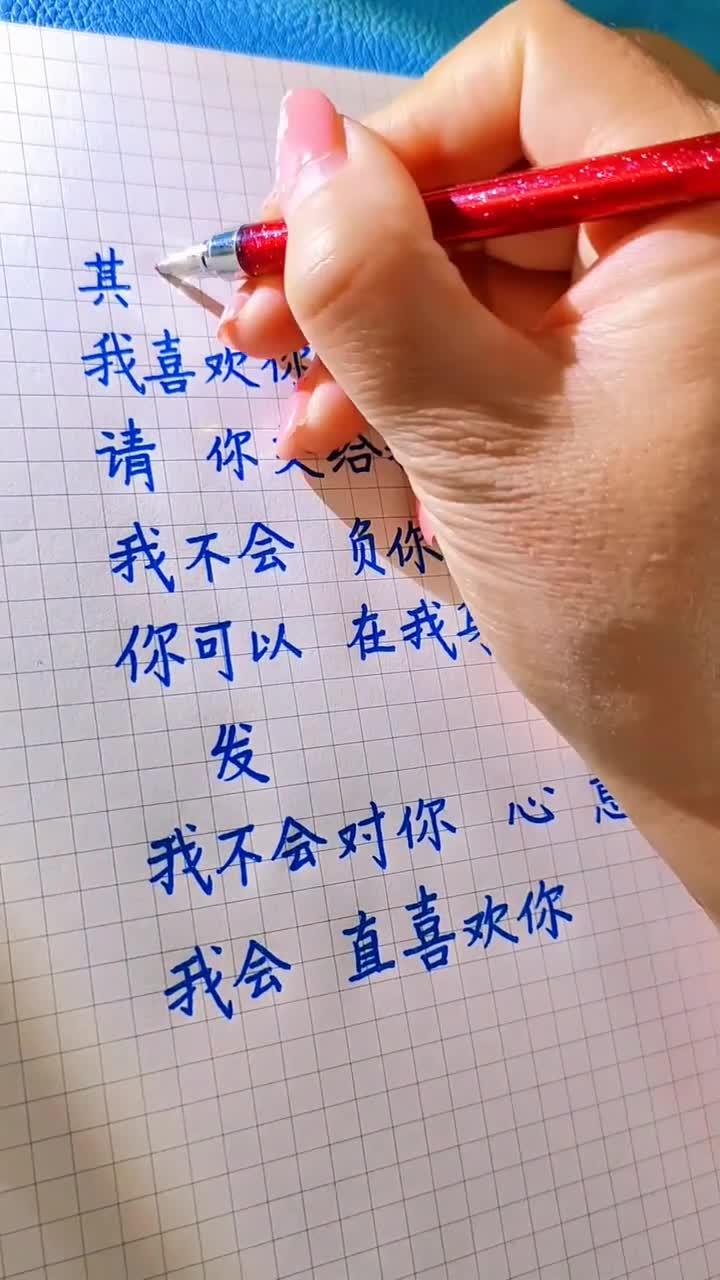 其
我喜欢你
请 你交给
我不会 负你
你可以 在我
发
我不会对你 心
我会 直喜欢你